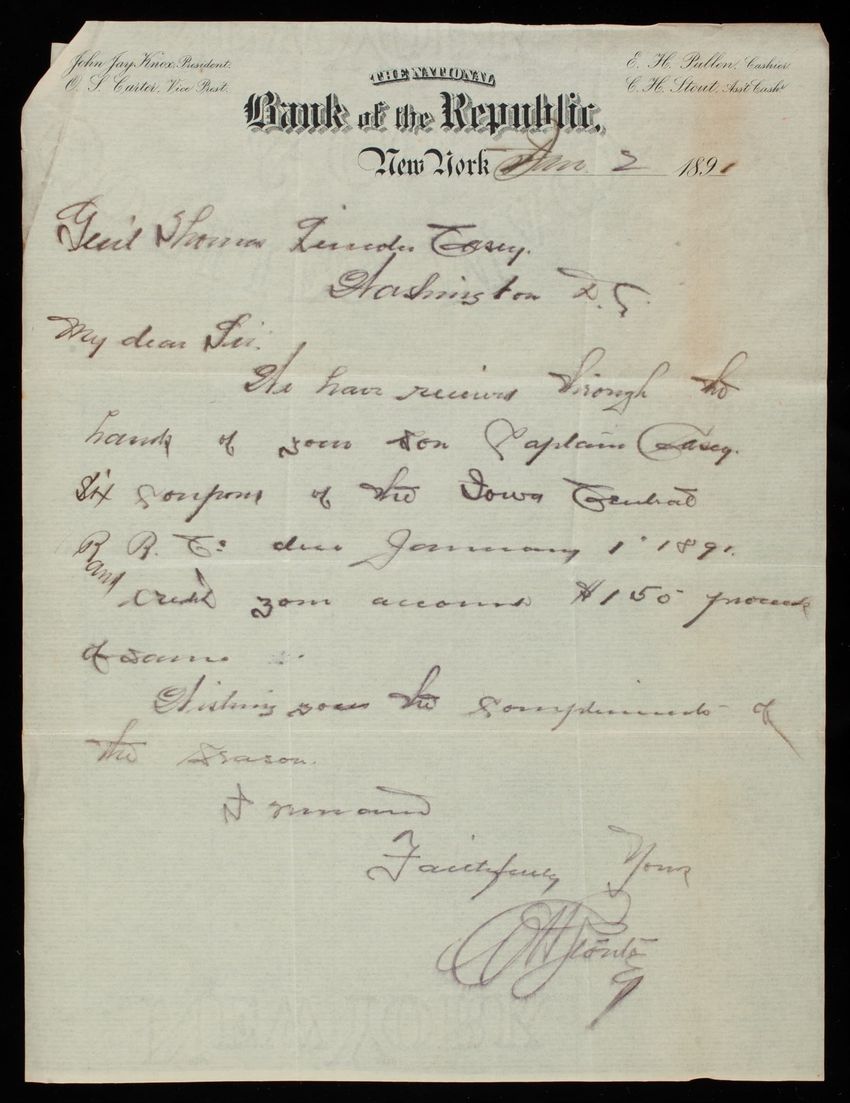 John Jay Knox, President.
O. S. Carter, Vice Prest.
E. H. Pullen, Cashier
C. H. Stout, Asst Cashr
THE NATIONAL
Bank of the Republic,
New York Jan 2 1891
Genl Thomas Lincoln Casey.
Washington D. C.
My dear Sir.
We have received through the
hands of your son Captain Casey.
Six Coupons of the Iowa Central
R. R. Co due January 1st 1891.
and credit your account $150 proceeds
of same
Wishing you the Compliments of
the Season.
I remain
Faithfully Yours
C H Stout